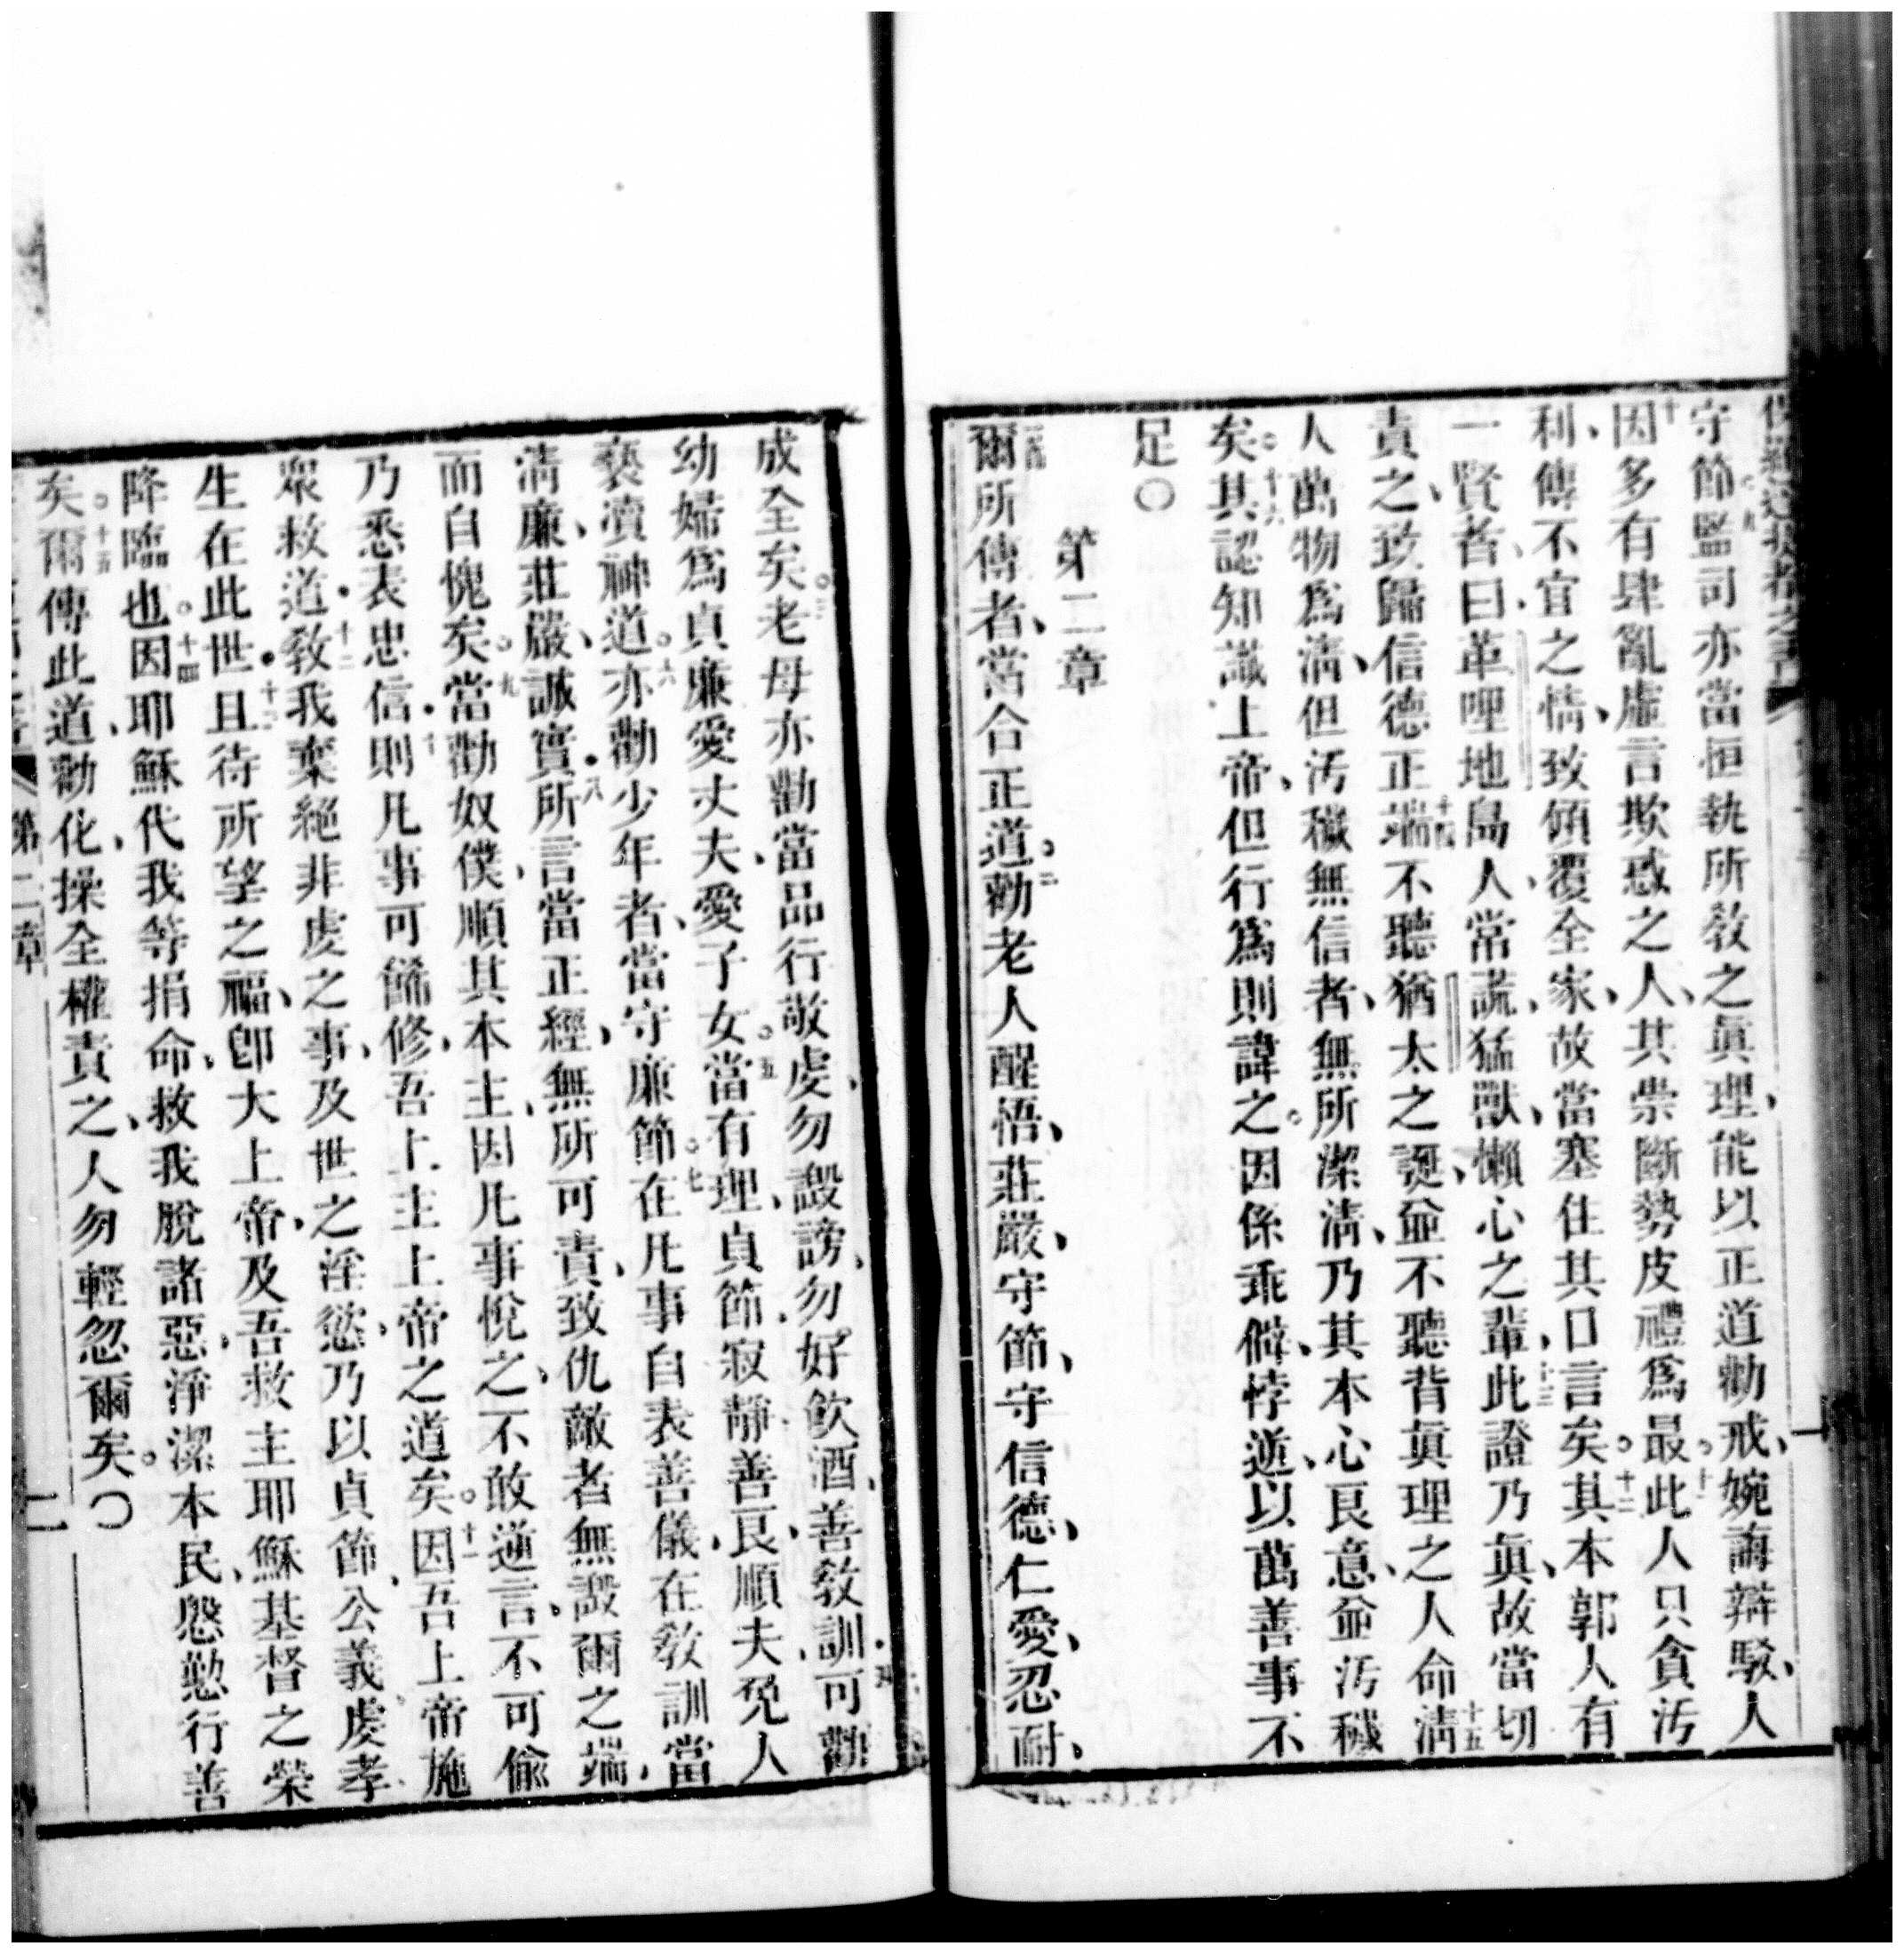 守節。九監司亦當恒執所敎之眞理、能以正道勸戒、婉誨辯駁、人
十因多有肆亂虛言欺惑之人、其祟斷勢皮禮爲最。十一此人只貪汚
利、傳不宜之情、致傾覆全家、故當塞住其口言矣。十二其本郭人有
一賢者曰、革哩地島人、常謊、猛獸、懶心之輩、十三此證乃眞、故當切
責之、致歸信德正端、十四不聽猶太之誕、並不聽背眞理之人命、十五淸
人萬物爲淸、但汚穢無信者、無所潔淸、乃其本心良意、並汚穢
矣。十六其認知識上帝、但行爲則諱之。因係乖僻、悖逆、以萬善事不
足〇
第二章
一爾所傳者、當合正道。二勸老人醒悟、莊嚴、守節、守信德、仁愛、忍耐、
成全矣。三老母亦勸當品行敬虔、勿譭謗、勿好飲酒、善敎訓。四可勸
幼婦爲貞廉愛丈夫、愛子女。五當有理、貞節、寂靜善良、順夫、免人
褻瀆神道。六亦勸少年者、當守廉節。七在凡事自表善儀、在敎訓當
淸廉、莊嚴、誠實。八所言當正經、無所可責、致仇敵者無譭爾之端、
而自愧矣。九當勸奴僕、順其本主、因凡事悅之、不敢逆言。十不可偸
乃悉表忠信、則凡事可餙修、吾主上帝之道矣。十一因吾上帝施
眾救道。十二敎我棄絕非虔之事、及世之淫慾、乃以貞節、公義、虔孝
生在此世。十三且待所望之福、卽大上帝、及吾救主耶穌基督之榮
降臨也。十四因耶穌代我等捐命、救我脫諸惡、淨潔本民、慇懃行善
矣。十五爾傳此道、勸化、操全權責之、人勿輕忽爾矣。〇
第二章
二